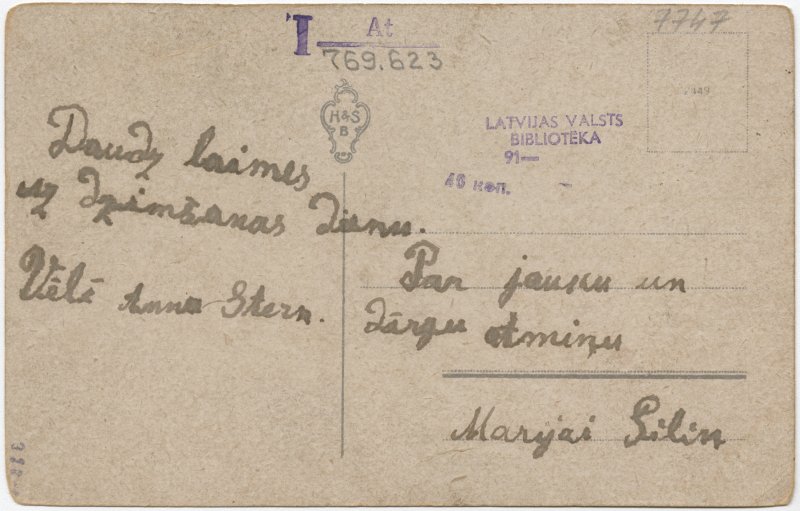 I At
769.623
7747
H&S
B
LATVIJAS VALSTS
BIBLIOTĒKA
91—
40 коп.
Daudz laimes
uz dzimšanas dienu.
Vēlē Anna Stern.
Par jauku un
dārgu atmiņu
Marijai Silin